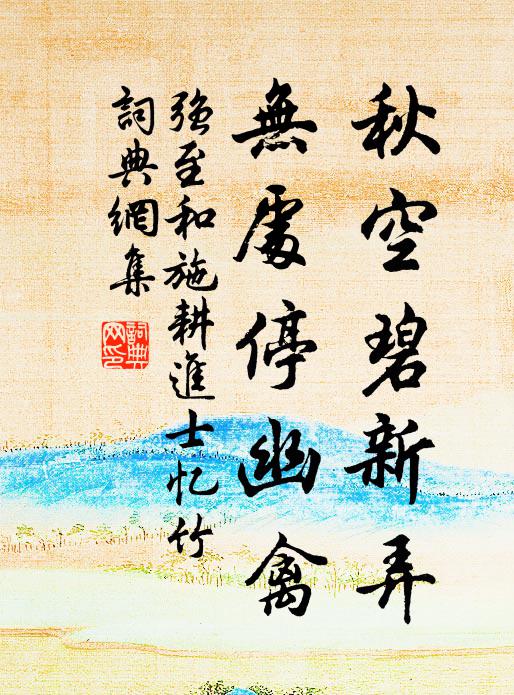 秋空碧新弄
無處停幽禽
強至和施耕進士忆竹
詞典網集
詞典
网印